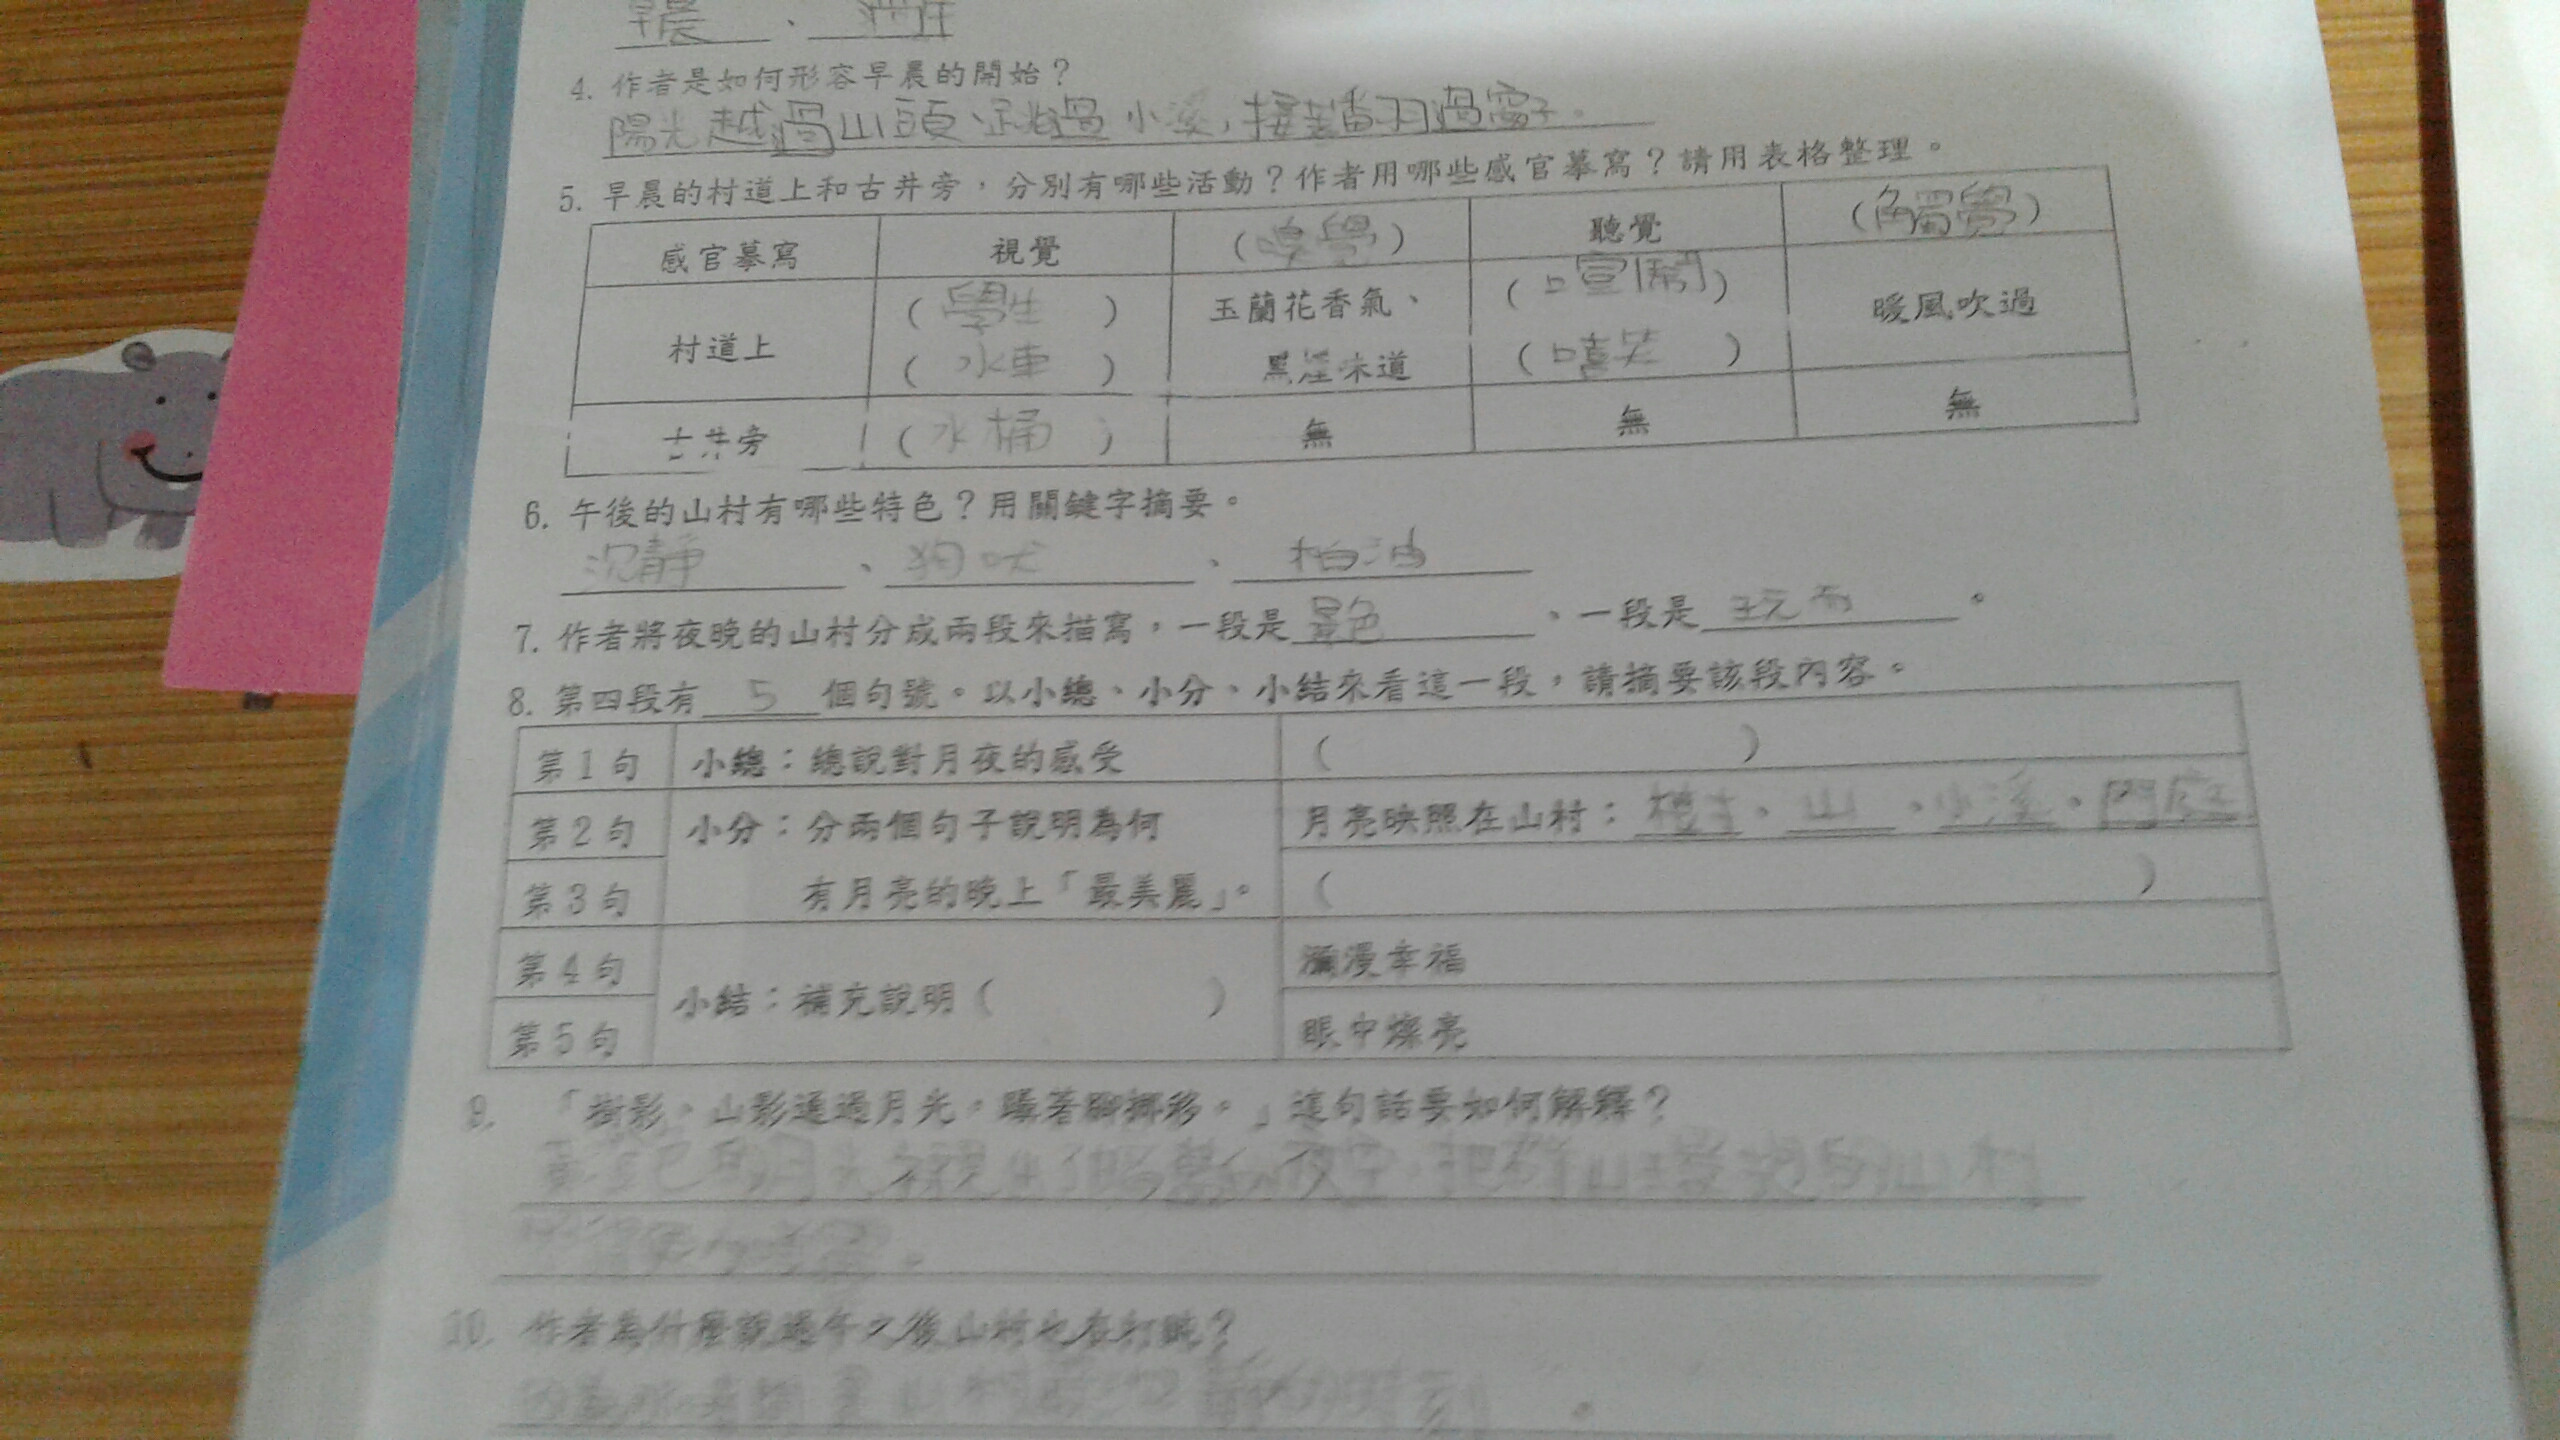 早晨、
4. 作者是如何形容早晨的開始？
陽光越過山頭、 過小溪,接著 過窗子。
5. 早晨的村道上和古井旁，分別有哪些活動？作者用哪些感官摹寫？請用表格整理。
感官摹寫 視覺 (嗅覺) 聽覺 (觸覺)
村道上 (學生) 玉蘭花香氣、 (喧鬧) 暖風吹過
(水車) 黑 味道 (嘻笑)
古井旁 (水桶) 無 無 無
6. 午後的山村有哪些特色？用關鍵字摘要。
沉靜、狗吠、柏油
7. 作者將夜晚的山村分成兩段來描寫，一段是景色、一段是玩
8. 第四段有 5 個句號。以小總、小分、小結來看這一段，請摘要該段內容。
第1句 小總：總說對月夜的感受 ( )
第2句 小分：分兩個句子說明為何 月亮映照在山村： 、山、小溪、門庭
第3句 有月亮的晚上「最美麗」。 ( )
第4句 小結：補充說明( ) 瀰漫幸福
第5句 眼中燦亮
9. 「樹影、山影透過月光，隨著腳挪移。」這句話要如何解釋？
的月光襯 出了 的夜空，把群山環抱的山村
10. 作者為什麼說過午之後山村也在打盹？
山村 的時刻。